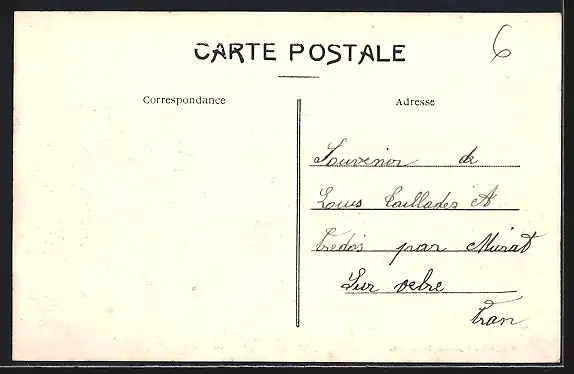 CARTE POSTALE
6
Correspondance
Adresse
Souvenir de
Louis Taillades A
Tredos par Murat
Sur vebre
Tran